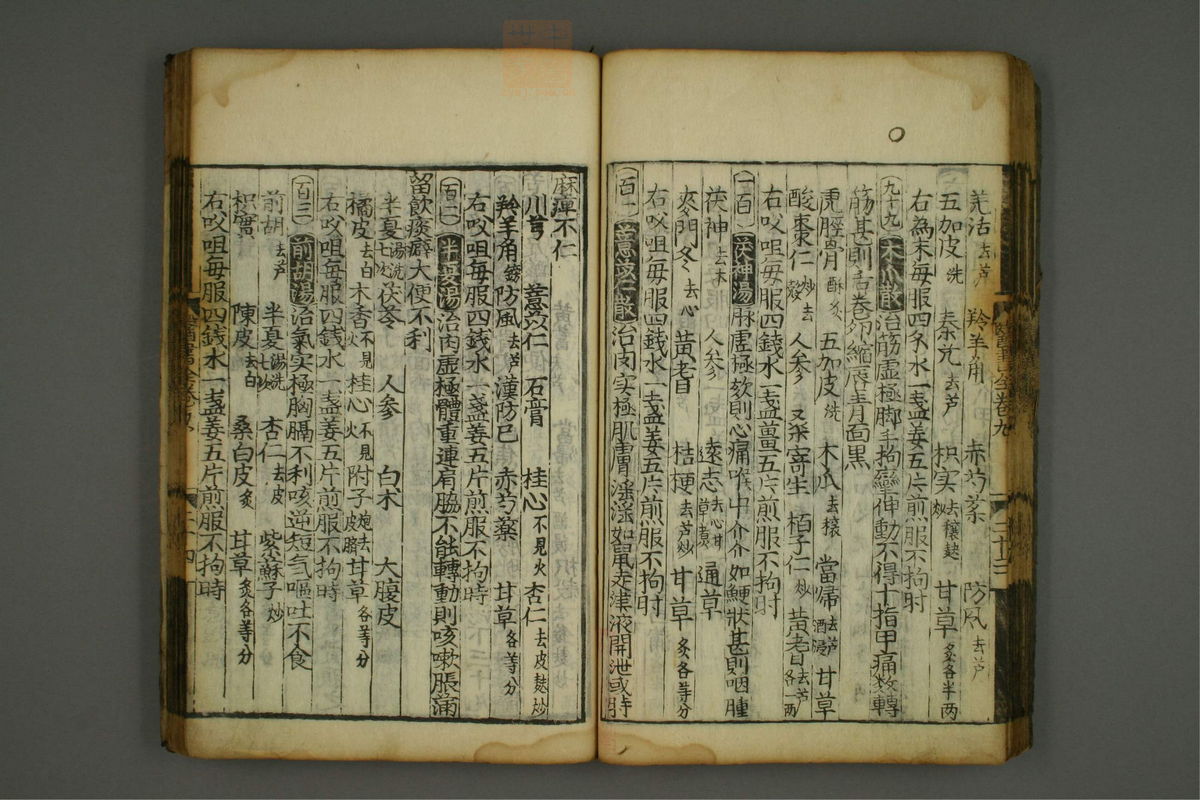 羗活去芦 羚羊角 赤芍藥 防风去芦
五加皮洗 秦艽去芦 枳实去穰麸炒 甘草炙各半两
右為末每服四錢水一盞姜五片煎服不拘时
九十九 木瓜散 治筋虚極脚手拘攣伸動不得十指甲痛数轉
筋甚則舌卷卵縮唇青面黒
虎脛骨酥炙 五加皮洗 木瓜去穰 當帰去芦酒浸 甘草
酸棗仁炒去殼 人参 桑寄生 栢子仁炒 黄耆去芦各一两
右㕮咀每服四錢水一盞薑五片煎服不拘时
一百 茯神湯 脉虚極欬則心痛喉中介介如鯁状甚則咽腫
茯神去木 人参 遠志去心甘草煮 通草
麥門冬去心 黄耆 桔梗去芦炒 甘草炙各等分
右㕮咀每服四錢水一盞姜五片煎服不拘时
百一 薏苡仁散 治肉实極肌膚淫淫如鼠走津液開泄或时
麻痺不仁
川芎 薏苡仁 石膏 桂心不見火 杏仁去皮麸炒
羚羊角鎊 防風去芦 漢防已 赤芍藥 甘草各等分
右㕮咀每服四錢水一盞姜五片煎服不拘時
百二 半夏湯 治肉虚極體重連肩脇不能轉動則咳嗽脹蒲
留飲痰癖大便不利
半夏湯洗七次 茯苓 人参 白术 大腹皮
橘皮去白 木香不見火 桂心不見火 附子炮去皮臍 甘草各等分
右㕮咀每服四錢水一盞姜五片煎服不拘時
百三 前胡湯 治氣实極胸膈不利咳逆短气嘔吐不食
前胡去芦 半夏湯洗七次 杏仁去皮 紫蘇子炒
枳實 陳皮去白 桑白皮炙 甘草炙各等分
右㕮咀每服四錢水一盞姜五片煎服不拘時